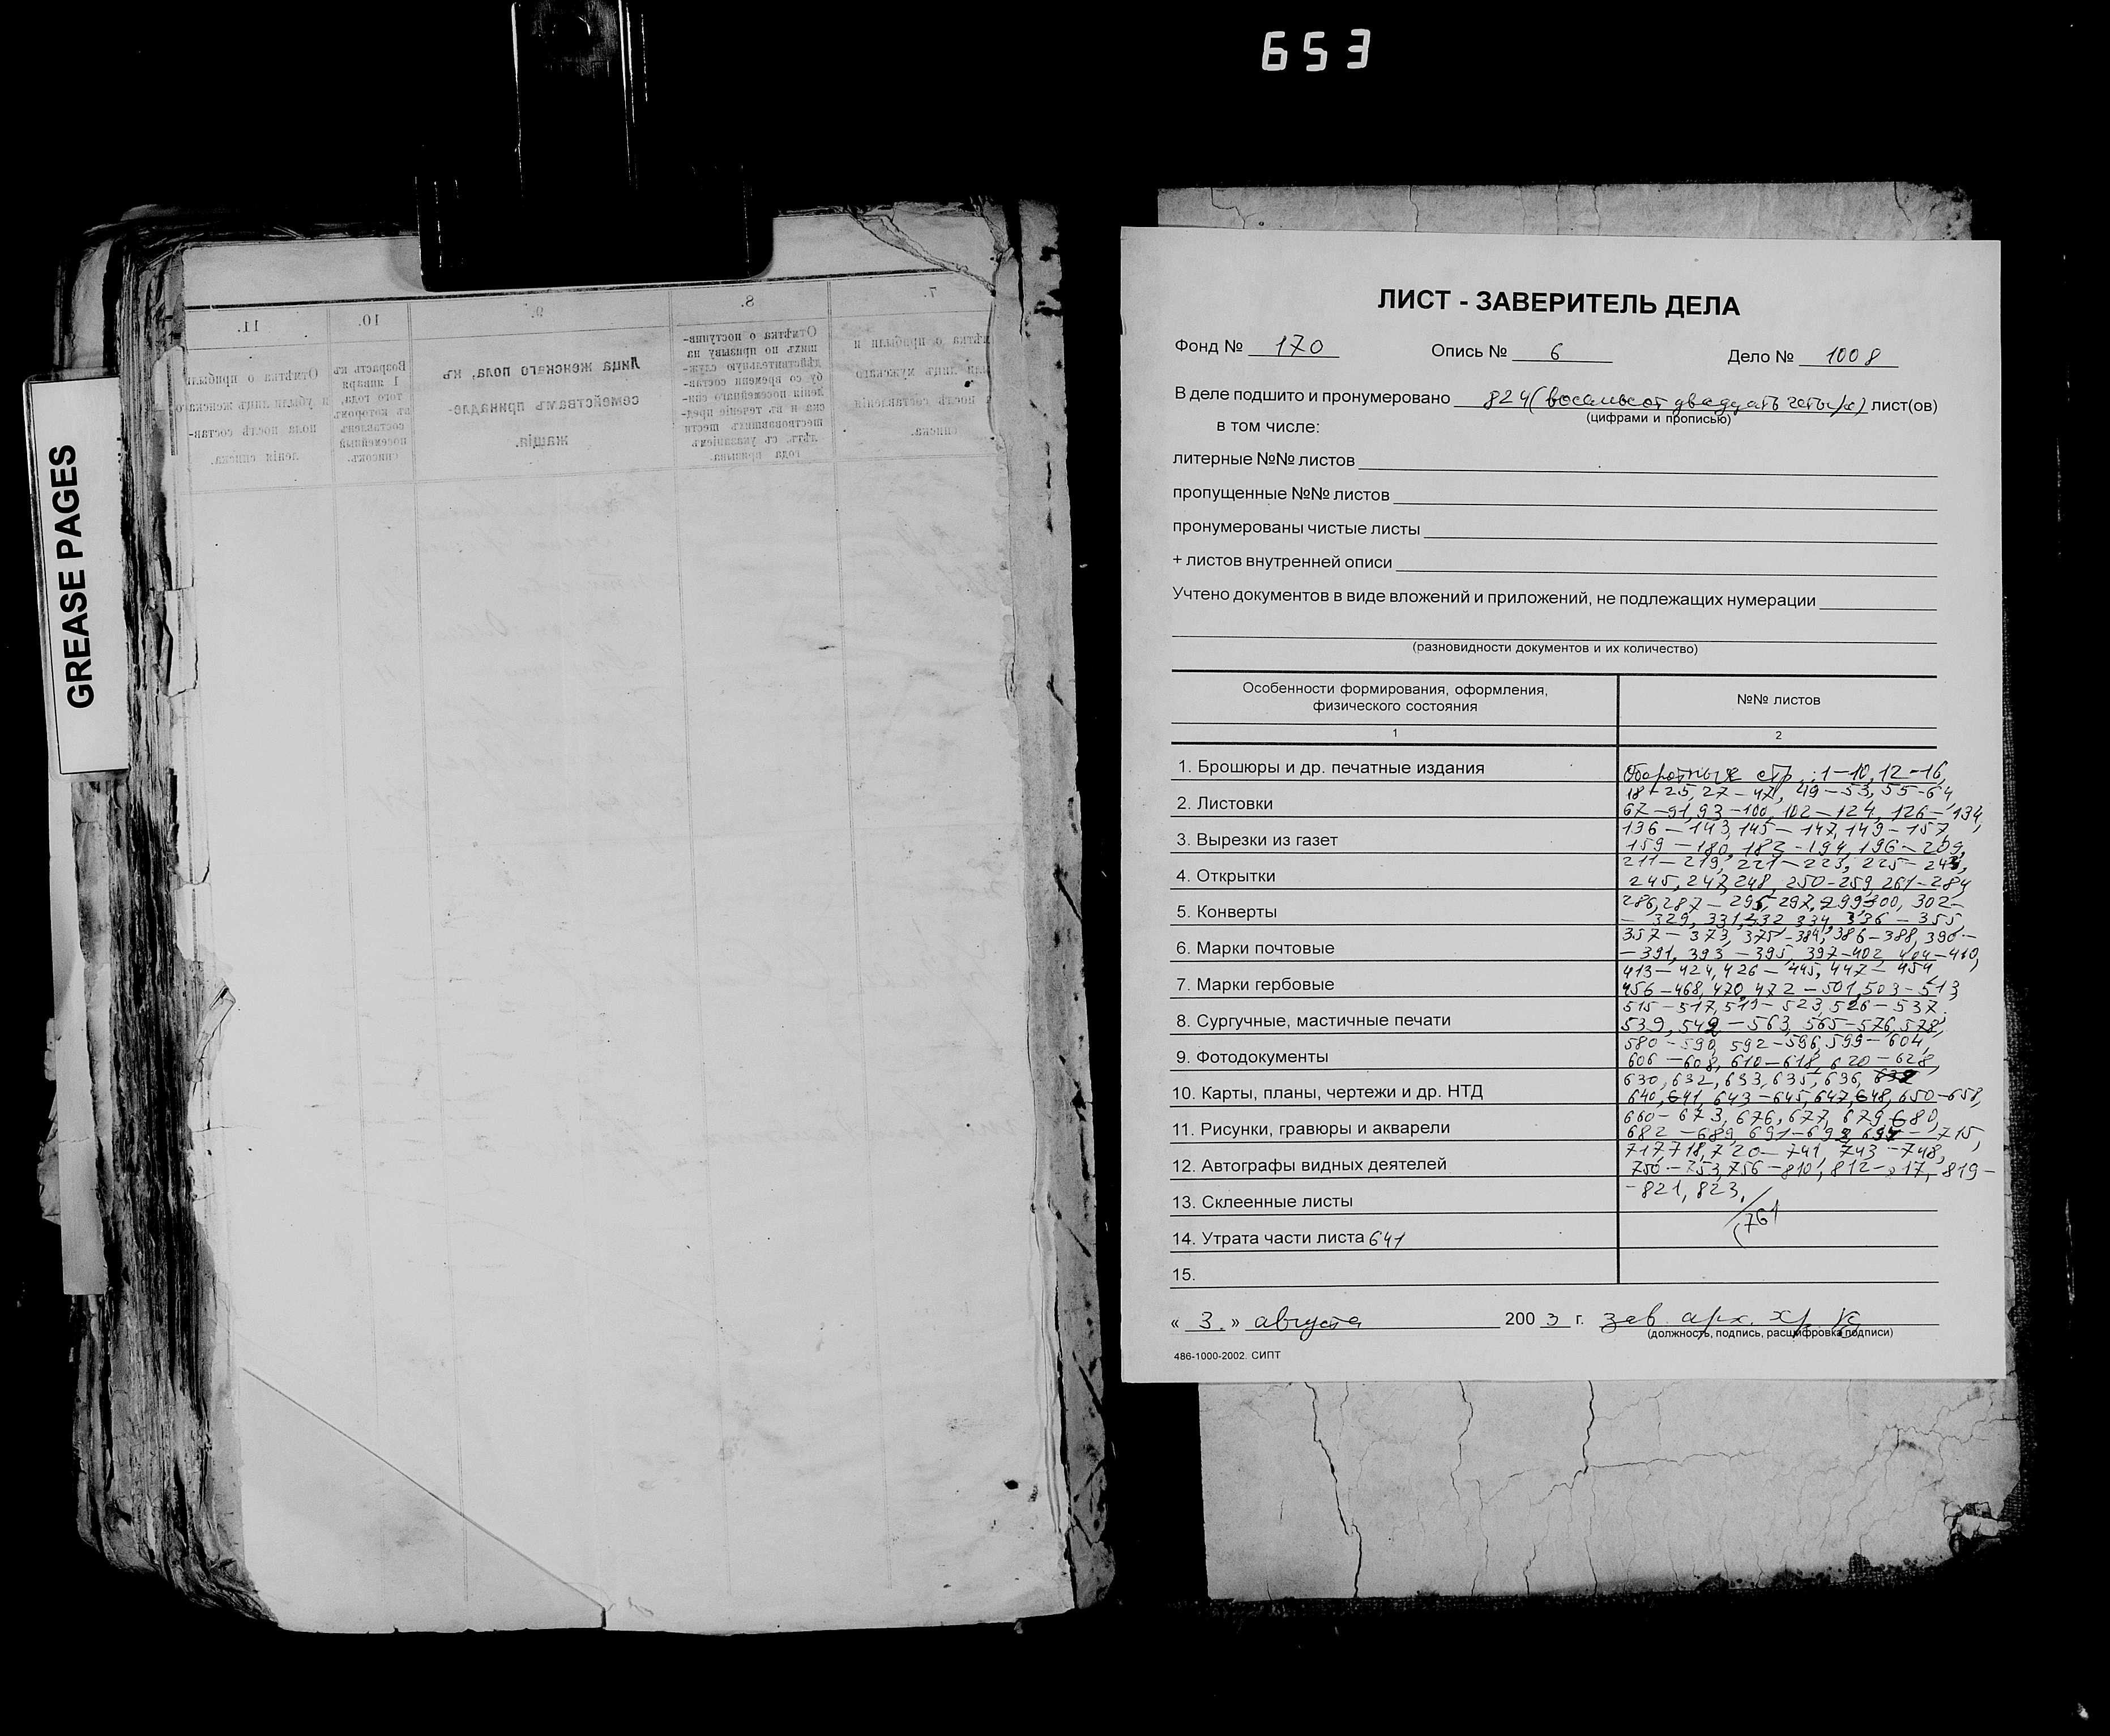 653
GREASE PAGES
11.
10.
9.
8.
7.
Отмѣтка о прибыли
и убыли лицъ женскаго
пола послѣ состав-
ленія списка.
Возрастъ къ
1 января
того года,
въ которомъ
составленъ
посемейный
списокъ.
Лица женскаго пола, къ
семействамъ принадле-
жащія.
Отмѣтка о поступив-
шихъ по призыву на
дѣйствительную служ-
бу со времени состав-
ленія посемейнаго спи-
ска и въ теченіе пред-
шествовавшихъ шести
лѣтъ, съ указаніемъ
года призыва.
о прибыли и
лицъ мужскаго
послѣ составленія
списка.
ЛИСТ - ЗАВЕРИТЕЛЬ ДЕЛА
Фонд № 170 Опись № 6 Дело № 1008
В деле подшито и пронумеровано 824 (восемьсот двадцать четыре) лист(ов)
(цифрами и прописью)
в том числе:
литерные №№ листов
пропущенные №№ листов
пронумерованы чистые листы
+ листов внутренней описи
Учтено документов в виде вложений и приложений, не подлежащих нумерации
(разновидности документов и их количество)
Особенности формирования, оформления,
физического состояния
№№ листов
1
2
1. Брошюры и др. печатные издания
2. Листовки
3. Вырезки из газет
4. Открытки
5. Конверты
6. Марки почтовые
7. Марки гербовые
8. Сургучные, мастичные печати
9. Фотодокументы
10. Карты, планы, чертежи и др. НТД
11. Рисунки, гравюры и акварели
12. Автографы видных деятелей
13. Склеенные листы
14. Утрата части листа 641
15.
Оборотные стр.: 1-10, 12-16,
18-25, 27-47, 49-53, 55-64,
67-91, 93-100, 102-124, 126-134,
136-143, 145-147, 149-157,
159-180, 182-194, 196-209,
211-219, 221-223, 225-243,
245, 247, 248, 250-259, 261-284
286, 287-295, 297, 299, 300, 302-
-329, 331, 332, 334, 336-355,
357-373, 375-384, 386-388, 390-
-391, 393-395, 397-402, 404-410,
413-424, 426-445, 447-454,
456-468, 470, 472-501, 503-513,
515-517, 519-523, 526-537.
539, 542-563, 565-576, 578,
580-590, 592-596, 599-604,
606-608, 610-618, 620-628,
630, 632, 633, 635, 636,
640, 641, 643-645, 647, 648, 650-658,
660-673, 676, 677, 679, 680,
682-689, 691-692, 694-715,
717, 718, 720-741, 743-748,
750-753, 756-810, 812-817, 819-
-821, 823.
761
« 3. » августа 2003 г. зав. арх. хр.
(должность, подпись, расшифровка подписи)
486-1000-2002. СИПТ